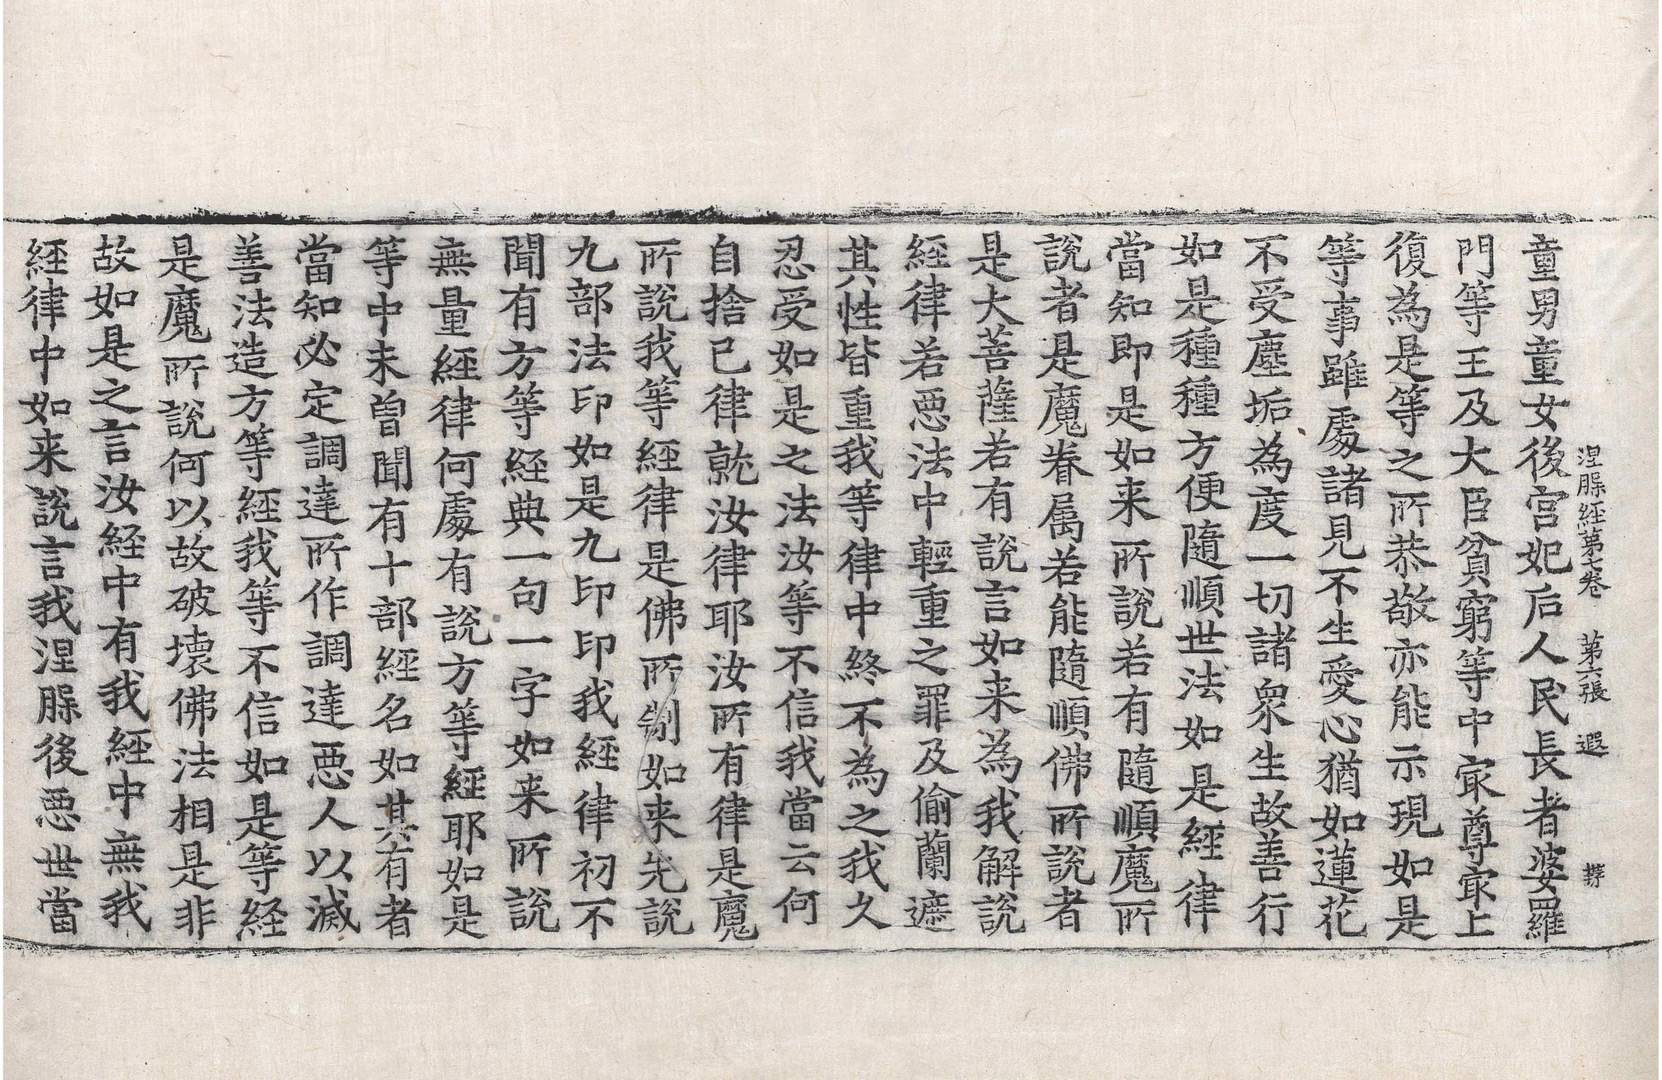 涅槃經第七卷 第六張 遐
童男童女後宮妃后人民長者婆羅
門等王及大臣貧窮等中㝡尊㝡上
復為是等之所恭敬亦能示現如是
等事雖處諸見不生愛心猶如蓮花
不受塵垢為度一切諸衆生故善行
如是種種方便隨順世法如是經律
當知即是如来所說若有隨順魔所
說者是魔眷屬若能隨順佛所說者
是大菩薩若有說言如来為我解說
經律若惡法中輕重之罪及偷蘭遮
其性皆重我等律中終不為之我久
忍受如是之法汝等不信我當云何
自捨己律就汝律耶汝所有律是魔
所說我等經律是佛所制如来先說
九部法印如是九印印我經律初不
聞有方等經典一句一字如来所說
無量經律何處有說方等經耶如是
等中未曾聞有十部經名如其有者
當知必定調達所作調達惡人以滅
善法造方等經我等不信如是等經
是魔所說何以故破壞佛法相是非
故如是之言汝經中有我經中無我
經律中如来說言我涅槃後惡世當